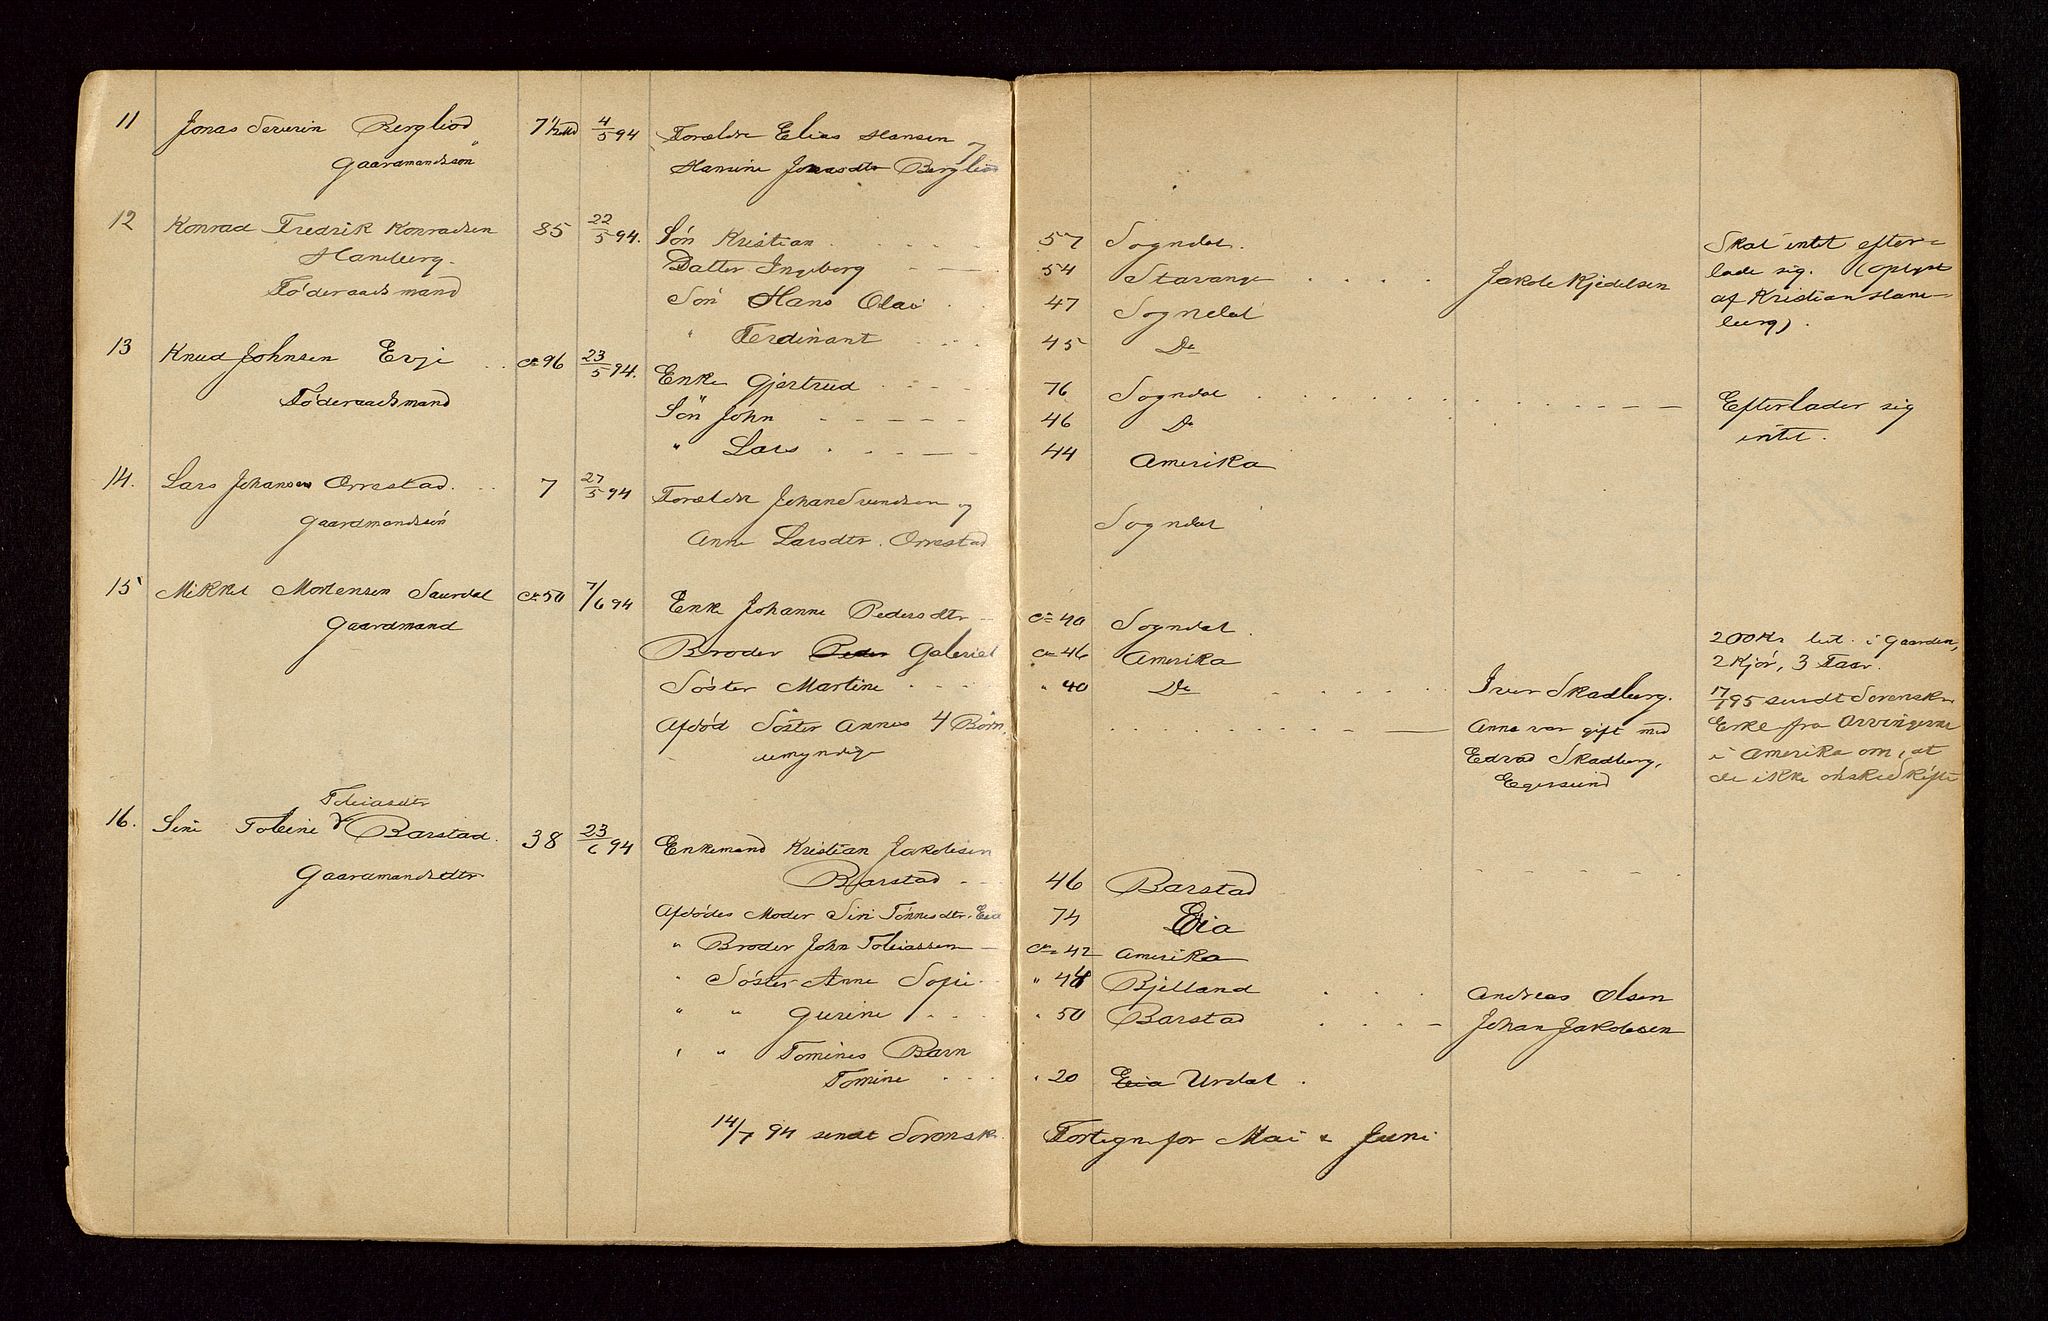 11 Jonas Severin Bergliod 7 1/2 Md 4/5 94 Forældre Elias Hansen
Gaardmandssøn Hansine Jonasdtr Bergliod
12 Konrad Fredrik Konradsen 85 22/5 94. Søn Kristian 57 Sogndal. Skal intet efter=
Haneberg. Datter Ingeborg 54 Stavanger Jakob Kjedelsen lade sig. (oplyst
Föderaadsmand Søn Hans Olai 47 Sogndal af Kristian Hane=
" Ferdinant 45 Do berg).
13 Knud Johnsen Evje ca 96 23/5 94. Enke Gjertrud 76 Sogndal Efterlader sig
Föderaadsmand Søn John 46 Do intet.
" Lars 44 Amerika
14. Lars Johansen Orrestad. 7 27/5 94 Forældre Johan Svendsen og
Gaardmandssøn Anne Larsdtr. Orrestad Sogndal
15 Mikkel Mortensen Saurdal ca 50 7/6 94 Enke Johanne Pedersdtr ca 40 Sogndal. 200 Kr. bet. i Gaarden,
Gaardmand Broder Peder Gabriel ca 46 Amerika 2 Kjør, 3 Faar.
Søster Martine " 40 Do Iver Skadberg. 17/7 95 sendt Sorensk.
Afdød Søster Annes 4 Børn Anne var gift med Erkl fra Arvingerne
umyndige Edvad Skadberg, i Amerika om, at
Egersund de ikke ønsked Skifte
Tobiasdtr
16. Sini Tobine Barstad. 38 23/6 94 Enkemand Kristian Jakobsen
Gaardmandsdtr Barstad 46 Barstad
Afdødes Moder Siri Tönnesdtr. Eia 74 Eia
" Broder John Tobiassen ca 42 Amerika
" Søster Anne Sofie " 48 Bjelland Andreas Olsen
" " Gurine " 50 Barstad Johan Jakobsen
" " Tomines Barn
Tomine " 20 Eia Urdal.
14/7 94 sendt Sorensk. Fortegn for Mai & Juni